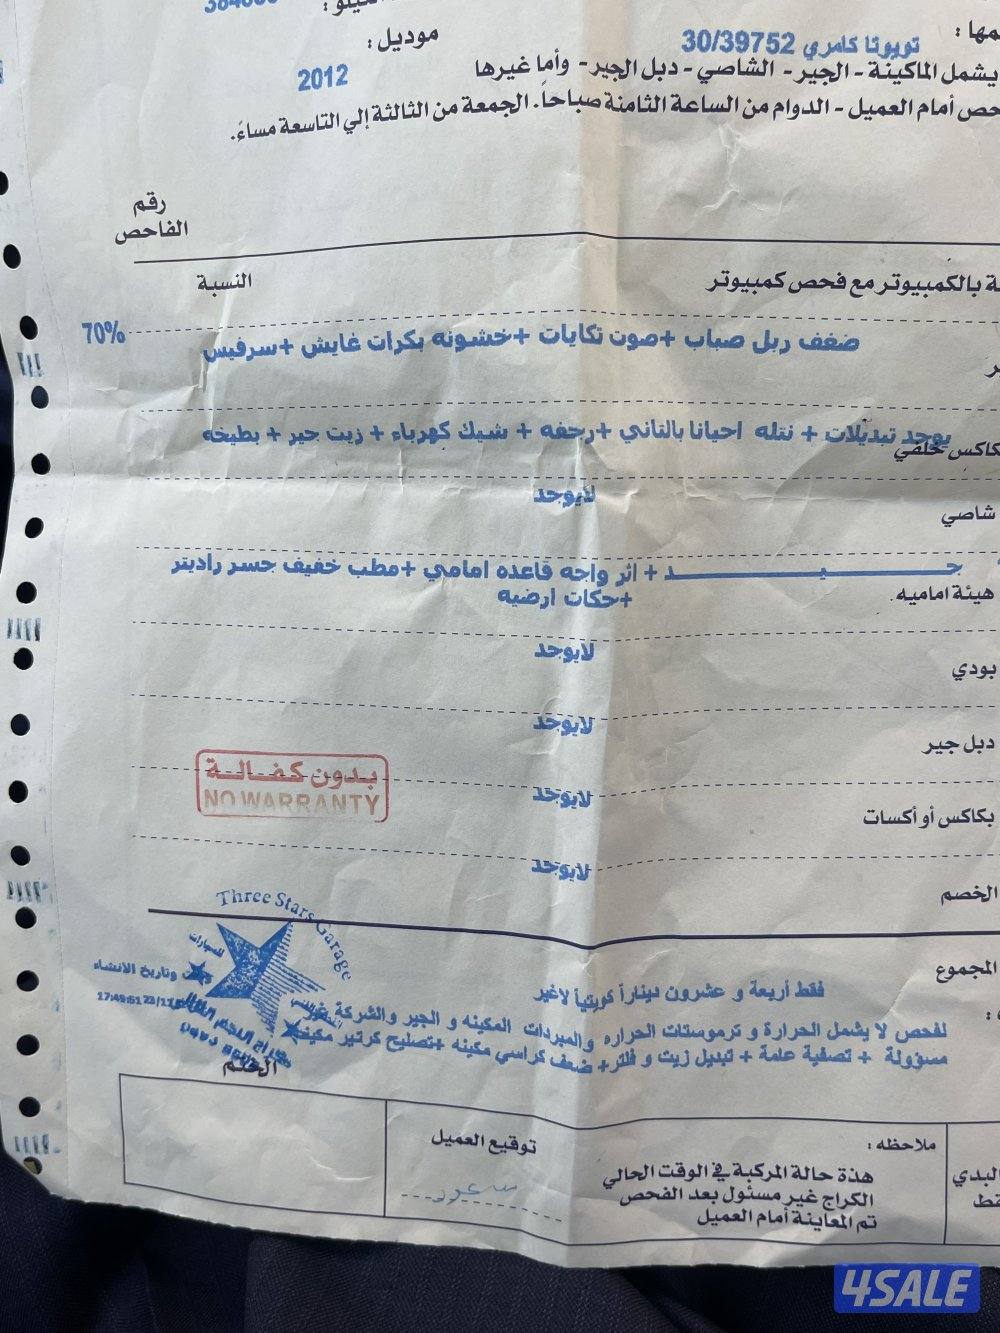 موديل:
تويوتا كامري 30/39752
2012
يشمل الماكينة - الجير - الشاصي - دبل الجير - وأما غيرها
أمام العميل - الدوام من الساعة الثامنة صباحاً. الجمعة من الثالثة إلي التاسعة مساءً.
رقم
الفاحص
بالكمبيوتر مع فحص كمبيوتر
النسبة
70%
ضغف ربل صباب +صوت تكايات +خشونه بكرات غايش +سرفيس
يوجد تبديلات + نتله احيانا بالتاني +رجفه + شيك كهرباء + زيت جير + بطيخه
خلفي
لايوجد
شاصي
جـــيـــد + اثر واجه قاعده امامي +مطب خفيف جسر راديتر
+حكات ارضيه
هيئة اماميه.
لايوجد
بودي
لايوجد
دبل جير
بدون كفالة
NO WARRANTY
لايوجد
بكاكس أو أكسات
لايوجد
الخصم
Three Stars Garage
للسيارات
وتاريخ الانشاء
المجموع
فقط أربعة و عشرون ديناراً كويتياً لاغير
لفحص لا يشمل الحرارة و ترموستات الحراره والمبردات المكينه و الجير والشركة غير
مسؤولة + تصفية عامة + تبديل زيت و فلتر+ ضعف كراسي مكينه +تصليح كراتير مكينه
الختم
توقيع العميل
ملاحظه :
هذة حالة المركبة في الوقت الحالي
الكراج غير مسئول بعد الفحص
تم المعاينة أمام العميل
البدي
4SALE